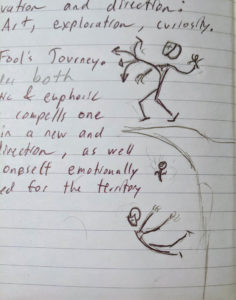 vation and direction.
Art, exploration, curiosity.
Fool's Journey.
both
tic & euphoric
compells one
in a new and
direction, as well
oneself emotionally
ed for the territory